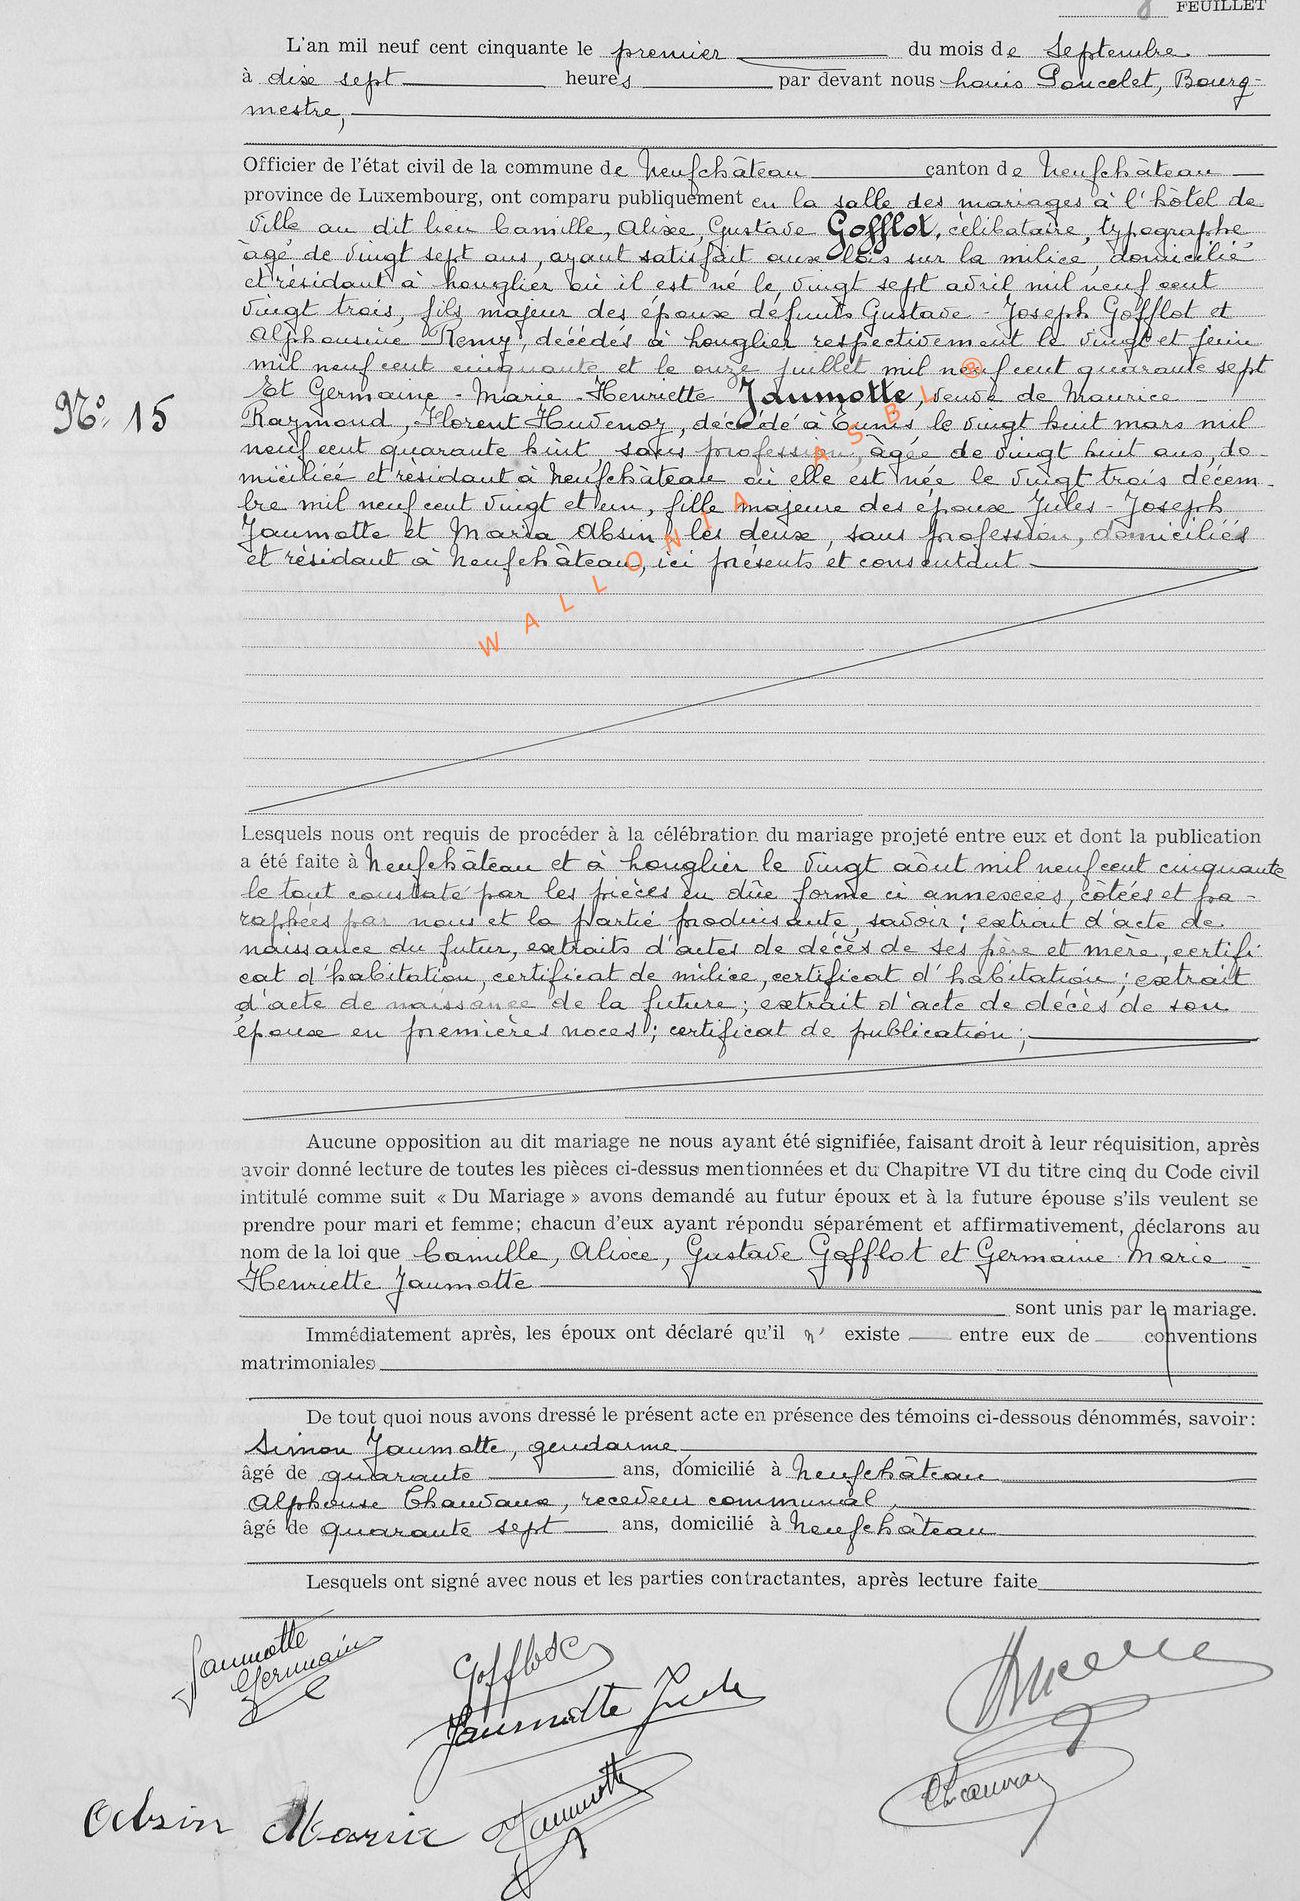 8 FEUILLET
L'an mil neuf cent cinquante le premier du mois de Septembre
à dix sept heures par devant nous Louis Poncelet, Bourg-
mestre,
Officier de l'état civil de la commune de Neufchâteau canton de Neufchâteau
province de Luxembourg, ont comparu publiquement en la salle des mariages à l'hôtel de
Ville au dit lieu Camille, Alixe, Gustave Gofflot, célibataire, typographe,
âgé de vingt sept ans, ayant satisfait aux lois sur la milice, domicilié
et résidant à Longlier où il est né le vingt sept avril mil neuf cent
vingt trois, fils majeur des époux défunts Gustave - Joseph Gofflot et
Alphonsine Remy, décédés à Longlier respectivement le vingt et juin
mil neuf cent cinquante et le onze juillet mil neuf cent quarante sept
Et Germaine - Marie - Henriette Jaumotte, veuve de Maurice
N° 15
Raymond, Florent Hudenoy, décédé à Tunis le vingt huit mars mil
neuf cent quarante huit, sans profession, âgée de vingt huit ans, do-
miciliée et résidant à Neufchâteau où elle est née le vingt trois décem-
bre mil neuf cent vingt et un, fille majeure des époux Jules - Joseph
Jaumotte et Maria Absin les deux, sans profession, domiciliés
et résidant à Neufchâteau, ici présents et consentant
WALLONIA ASBL ®
Lesquels nous ont requis de procéder à la célébration du mariage projeté entre eux et dont la publication
a été faite à Neufchâteau et à Longlier le vingt août mil neuf cent cinquante
le tout constaté par les pièces en dûe forme ci annexées, côtées et pa-
raphées par nous et la partie produisante, savoir; extrait d'acte de
naissance du futur, extraits d'actes de décès de ses père et mère, certifi
cat d'habitation, certificat de milice, certificat d'habitation; extrait
d'acte de naissance de la future; extrait d'acte de décès de son
époux en premières noces; certificat de publication;
Aucune opposition au dit mariage ne nous ayant été signifiée, faisant droit à leur réquisition, après
avoir donné lecture de toutes les pièces ci-dessus mentionnées et du Chapitre VI du titre cinq du Code civil
intitulé comme suit « Du Mariage » avons demandé au futur époux et à la future épouse s'ils veulent se
prendre pour mari et femme; chacun d'eux ayant répondu séparément et affirmativement, déclarons au
nom de la loi que Camille, Alixe, Gustave Gofflot et Germaine Marie -
Henriette Jaumotte
sont unis par le mariage.
Immédiatement après, les époux ont déclaré qu'il n' existe entre eux de conventions
matrimoniales
De tout quoi nous avons dressé le présent acte en présence des témoins ci-dessous dénommés, savoir:
Simon Jaumotte, gendarme
âgé de quarante ans, domicilié à Neufchâteau
Alphonse Chauvaux, receveur communal,
âgé de quarante sept ans, domicilié à Neufchâteau
Lesquels ont signé avec nous et les parties contractantes, après lecture faite
Jaumotte
Germaine
Gofflot C
Jaumotte Jules
Absin Maria
Jaumotte